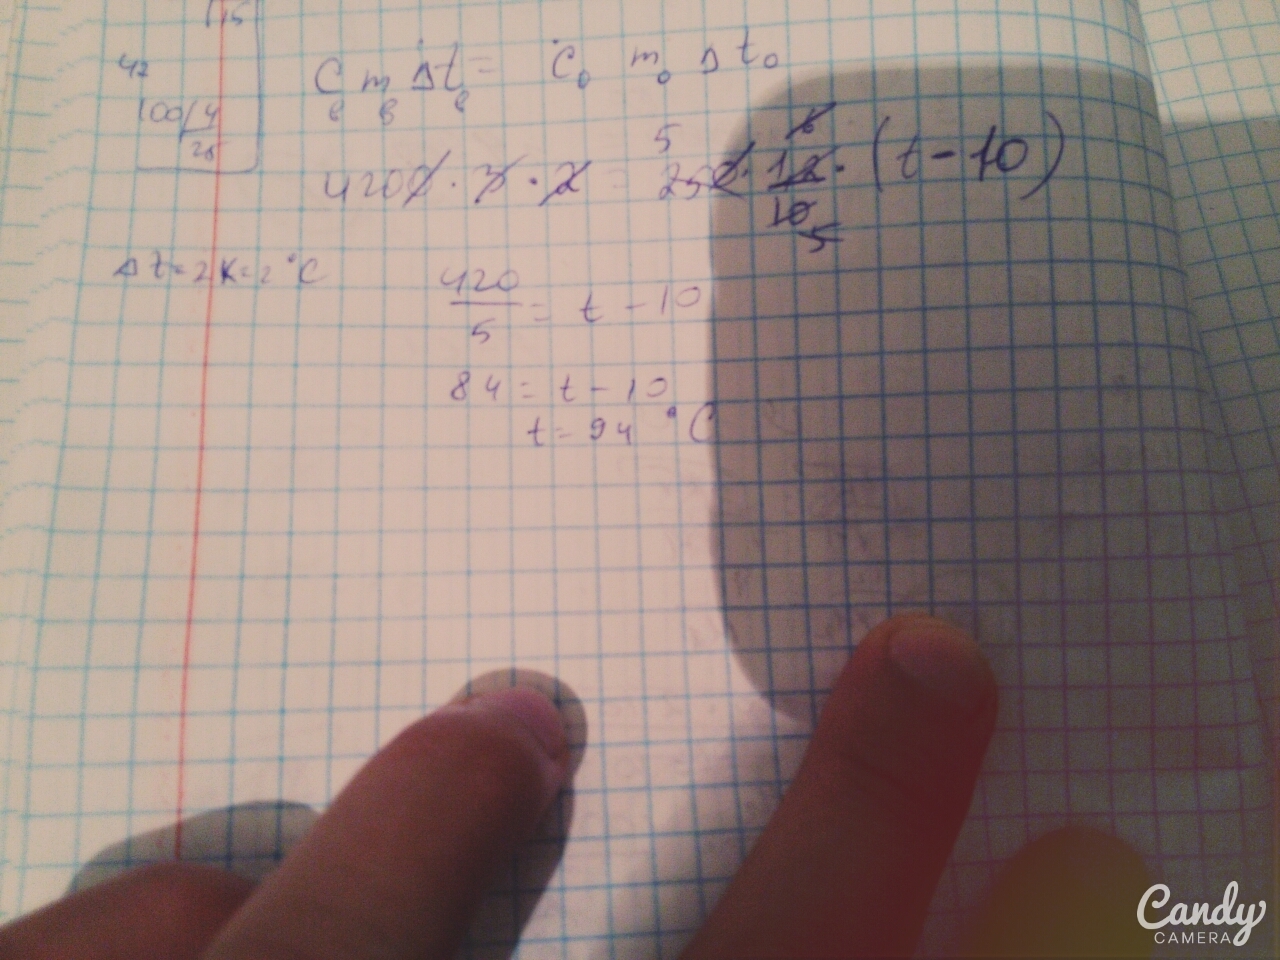 15
42
100 4
25
C в m в Δt в = C o m o Δ t o
5 6
4200 · 3 · 2 = 250 · 12/10 · (t - 10)
5
Δt = 2K = 2 °C
420/5 = t - 10
84 = t - 10
t = 94 °C
Candy
CAMERA